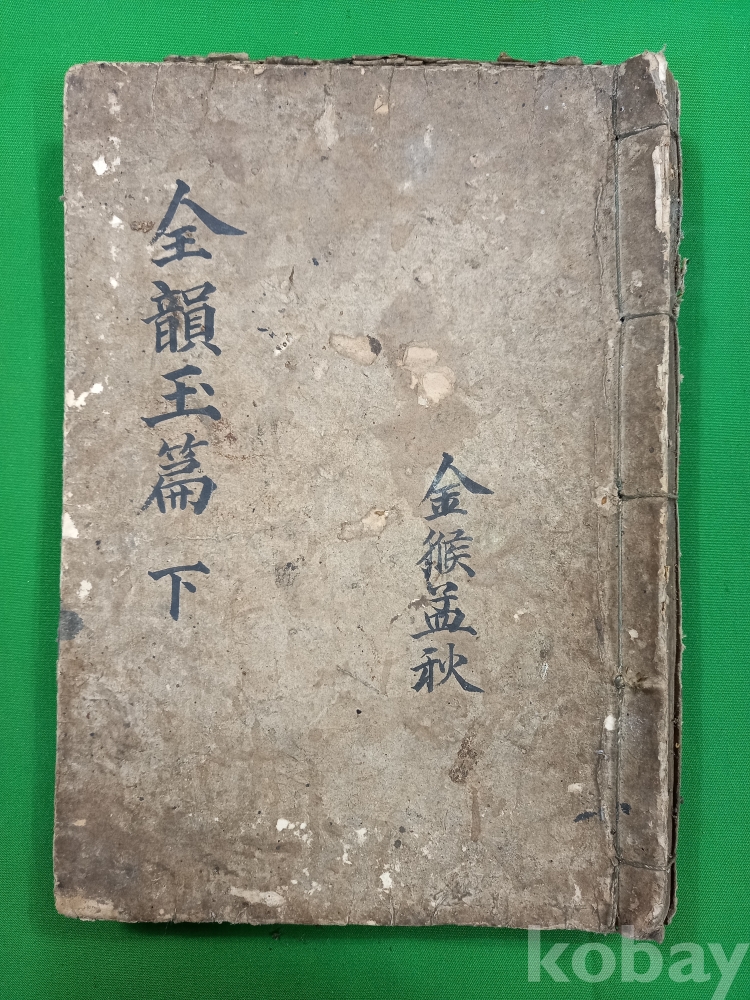 全韻玉篇 下
金猴孟秋
kobay